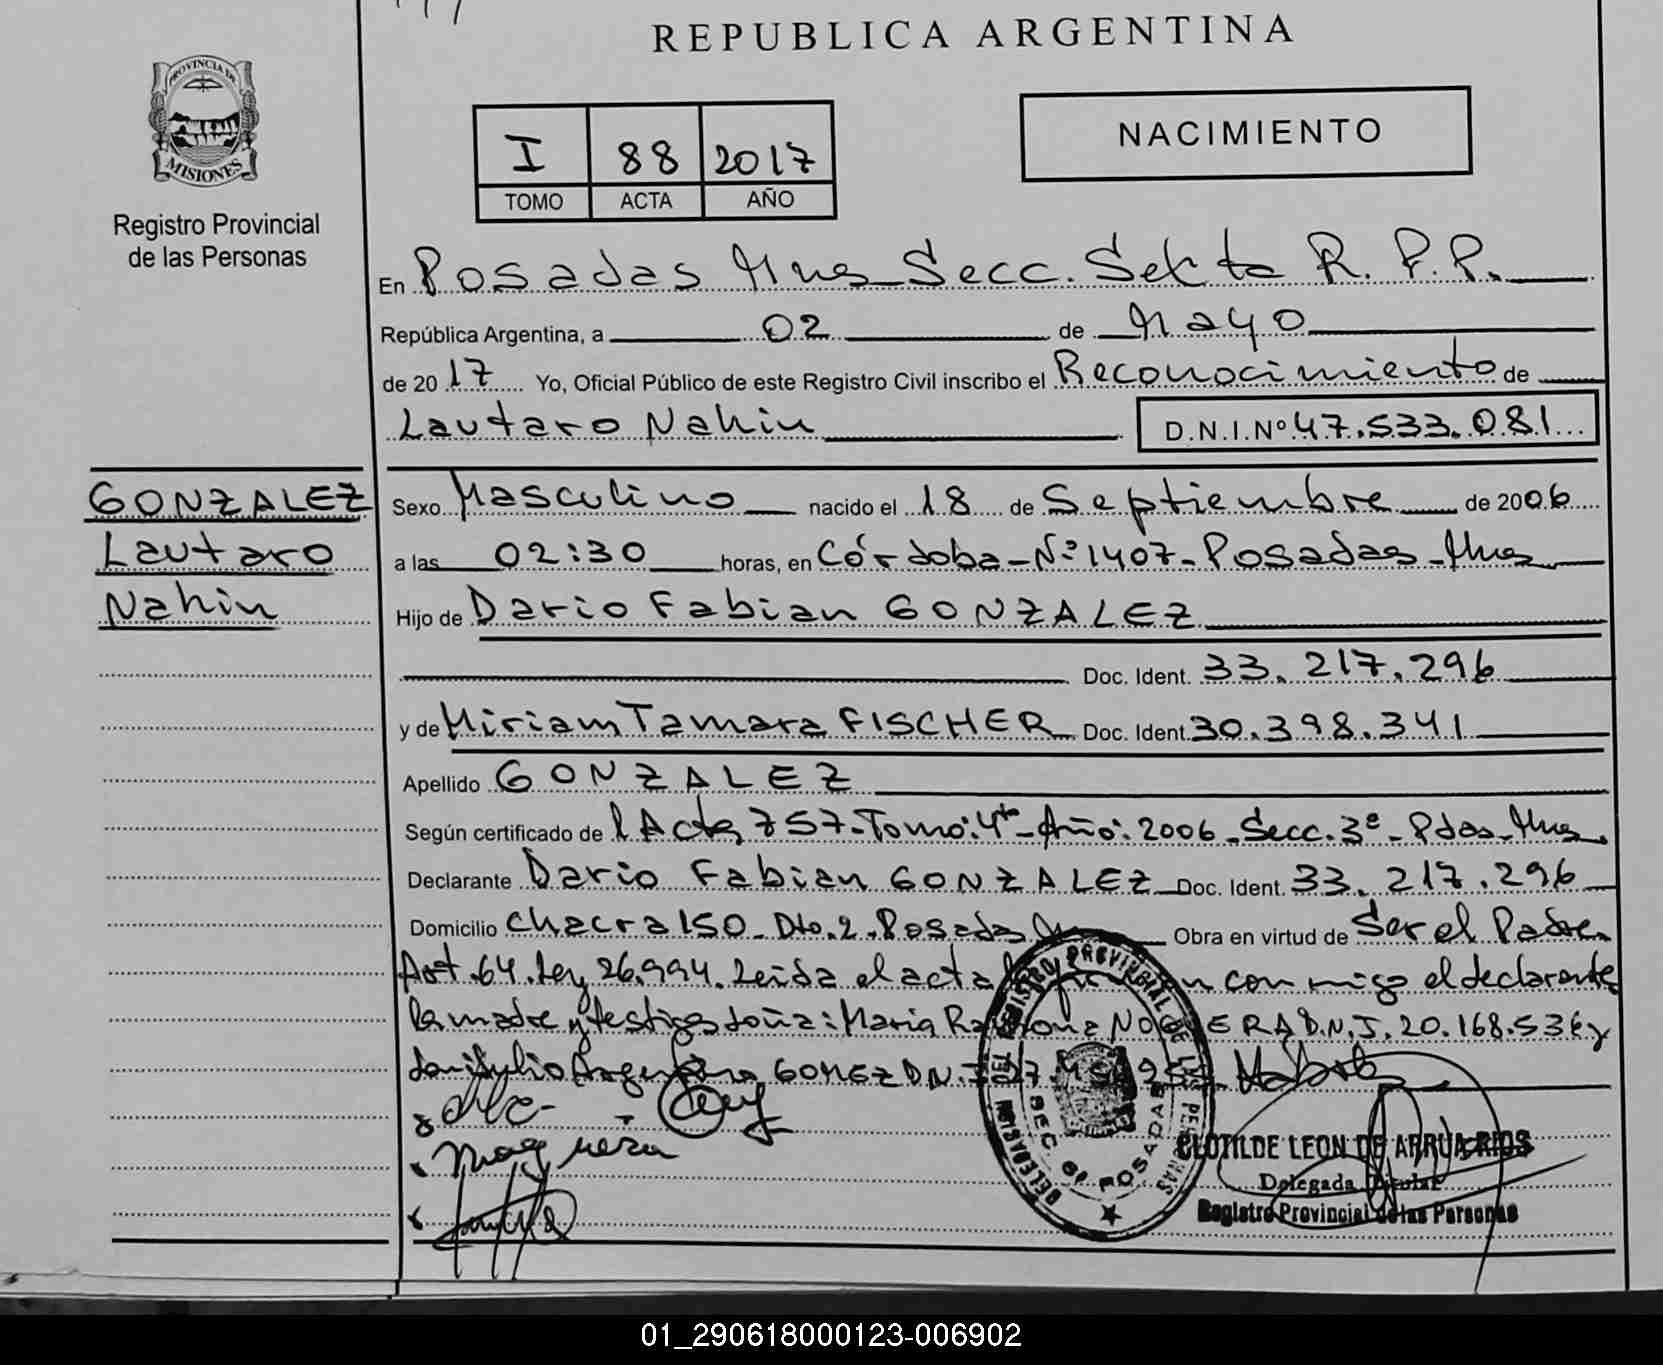 REPUBLICA ARGENTINA
PROVINCIA DE
MISIONES
Registro Provincial
de las Personas
I 88 2017
TOMO ACTA AÑO
NACIMIENTO
En Posadas Mnes Secc. Sexta R. P. P.
República Argentina, a 02 de Mayo
de 2017 Yo, Oficial Público de este Registro Civil inscribo el Reconocimiento de
Lautaro Nahin D.N.I.Nº 47.533.081
GONZALEZ
Lautaro
Nahin
Sexo Masculino nacido el 18 de Septiembre de 2006
a las 02:30 horas, en Córdoba-Nº1407-Posadas-Mnes
Hijo de Dario Fabian GONZALEZ
Doc. Ident. 33.217.296
y de Miriam Tamara FISCHER Doc. Ident. 30.398.341
Apellido GONZALEZ
Según certificado de l Acta 757-Tomo:4to-Año:2006-Secc.3ª-Pdas-Mnes.
Declarante Dario Fabian GONZALEZ Doc. Ident. 33.217.296
Domicilio Chacra 150-Dto.2-Posadas Obra en virtud de Ser el Padre.
Art.64.Ley 26.994. Leida el acta la conmigo el declarante
la madre y testigos doña: Maria Ramona D.N.I. 20.168.536 y
don Julio Argentino GOMEZ DN.I
REGISTRO PROVINCIAL DE LAS PERSONAS
DELEGACION
SEC. 6ª POSADAS
CLOTILDE LEON DE ARRUA RIOS
Delegada Titular
Registro Provincial de las Personas
01_290618000123-006902